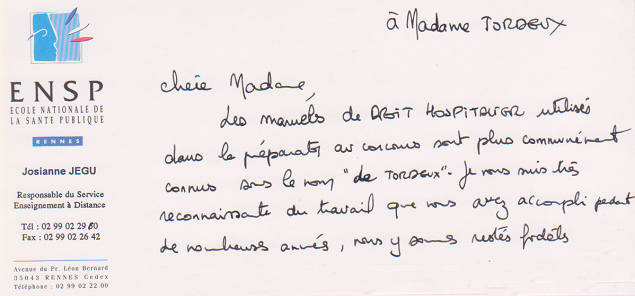 à Madame TORDEUX
ENSP
ECOLE NATIONALE DE
LA SANTE PUBLIQUE
RENNES
Josianne JEGU
Responsable du Service
Enseignement à Distance
Tél : 02 99 02 29 80
Fax : 02 99 02 26 42
Avenue du Pr. Léon Bernard
35043 RENNES Cedex
Téléphone : 02 99 02 22 00
chère Madame,
Les manuels de DROIT HOSPITALIER utilisés
dans la préparat° au concours sont plus communément
connus sous le nom "de TORDEUX". Je vous suis très
reconnaissante du travail que vous avez accompli pendant
de nombreuses années, nous y sommes restés fidèles